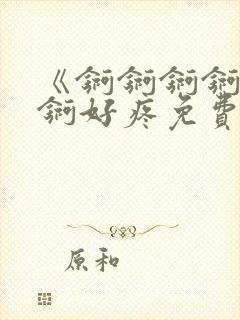 《锕锕锕锕
锕好疼免費
原和